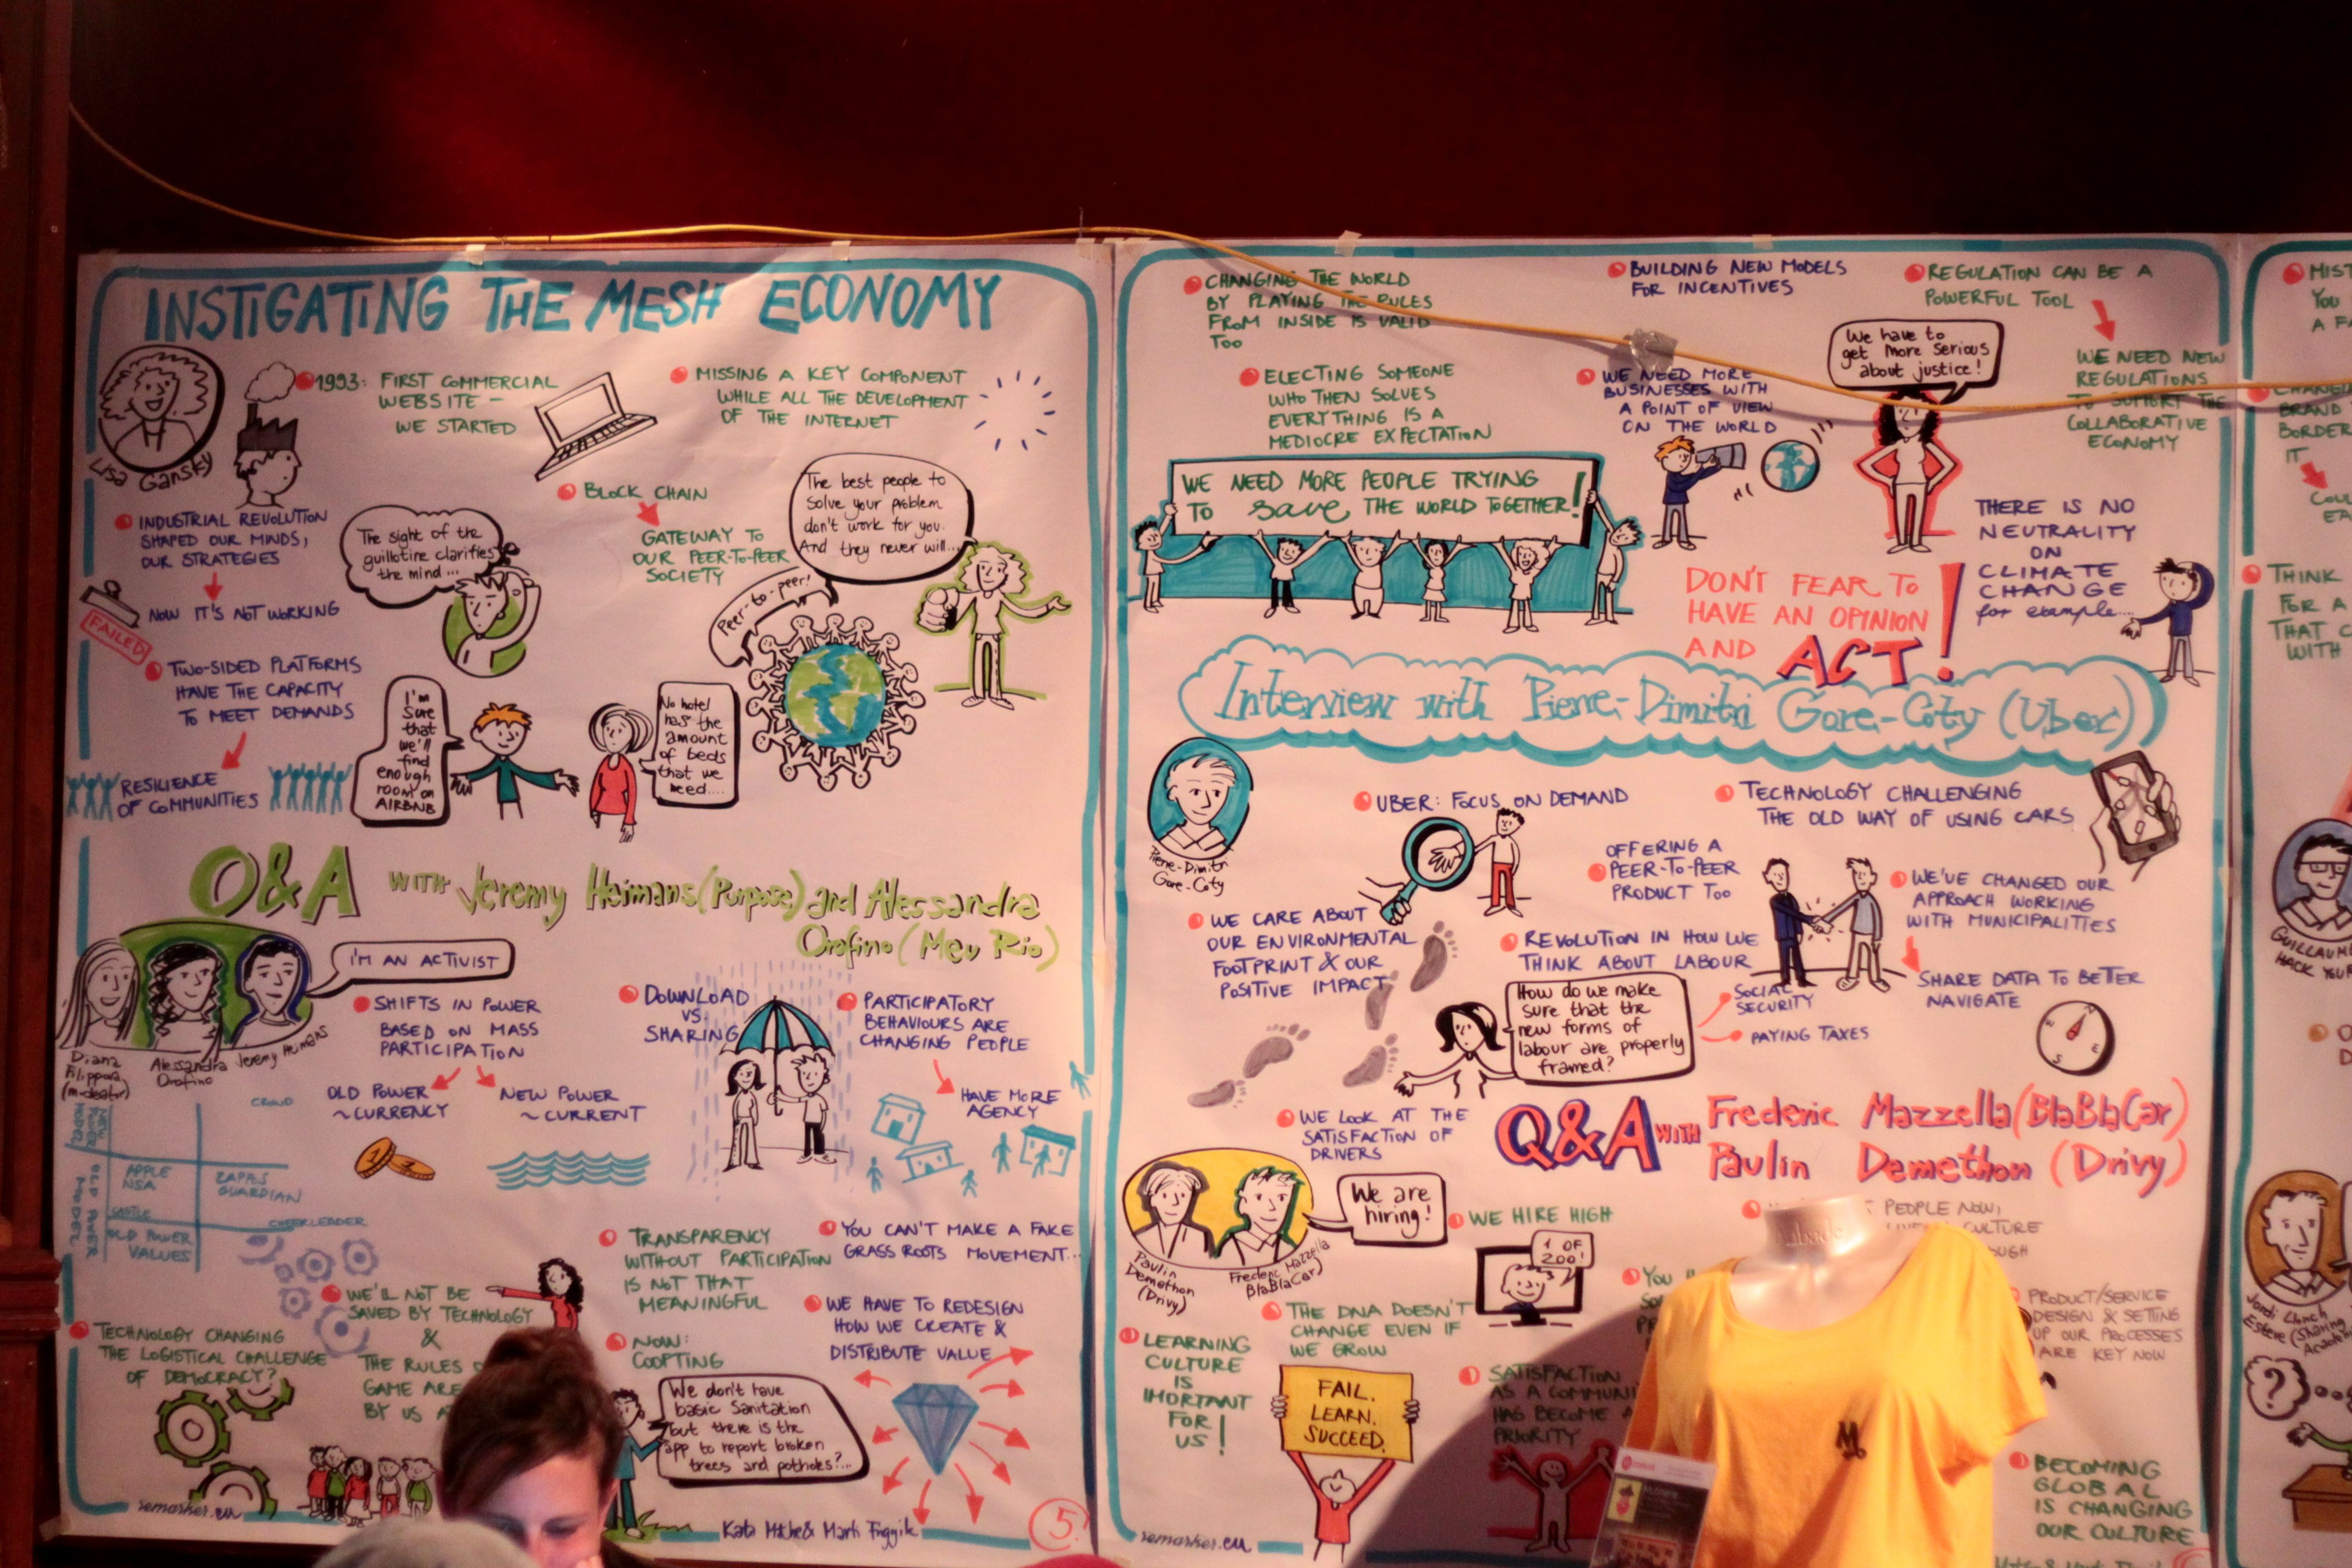 INSTIGATING THE MESH ECONOMY
Lisa Gansky
1993: FIRST COMMERCIAL
WEBSITE –
WE STARTED
MISSING A KEY COMPONENT
WHILE ALL THE DEVELOPMENT
OF THE INTERNET
INDUSTRIAL REVOLUTION
SHAPED OUR MINDS,
OUR STRATEGIES
NOW IT'S NOT WORKING
FAILED
The sight of the
guillotine clarifies
the mind...
BLOCK CHAIN
GATEWAY TO
OUR PEER-TO-PEER
SOCIETY
The best people to
solve your problem
don't work for you.
And they never will...
Peer-to-peer!
TWO-SIDED PLATFORMS
HAVE THE CAPACITY
TO MEET DEMANDS
RESILIENCE
OF COMMUNITIES
I'm
sure
that
we'll
find
enough
room on
AIRBNB
No hotel
has the
amount
of beds
that we
need....
Q&A WITH Jeremy Heimans (Purpose) and Alessandra
Orofino (Meu Rio)
I'M AN ACTIVIST
Diana
Filippova
(m-deator)
Alessandra
Orofino
Jeremy Heimans
SHIFTS IN POWER
BASED ON MASS
PARTICIPATION
OLD POWER
~CURRENCY
NEW POWER
~CURRENT
DOWNLOAD
VS.
SHARING
PARTICIPATORY
BEHAVIOURS ARE
CHANGING PEOPLE
HAVE MORE
AGENCY
NEW
POWER
MODEL
OLD POWER
MODEL
CROWD
APPLE
NSA
GUARDIAN
CASTLE
CHEERLEADER
OLD POWER
VALUES
TRANSPARENCY
WITHOUT PARTICIPATION
IS NOT THAT
MEANINGFUL
YOU CAN'T MAKE A FAKE
GRASS ROOTS MOVEMENT...
WE'LL NOT BE
SAVED BY TECHNOLOGY
&
THE RULES
GAME ARE
BY US
TECHNOLOGY CHANGING
THE LOGISTICAL CHALLENGE
OF DEMOCRACY?
NOW:
COOPTING
WE HAVE TO REDESIGN
HOW WE CREATE &
DISTRIBUTE VALUE
We don't have
basic sanitation
but there is the
app to report broken
trees and potholes?...
remarker.eu
5.
CHANGING THE WORLD
BY PLAYING THE RULES
FROM INSIDE IS VALID
TOO
BUILDING NEW MODELS
FOR INCENTIVES
REGULATION CAN BE A
POWERFUL TOOL
WE NEED NEW
REGULATIONS
TO SUPPORT THE
COLLABORATIVE
ECONOMY
We have to
get more serious
about justice!
ELECTING SOMEONE
WHO THEN SOLVES
EVERYTHING IS A
MEDIOCRE EXPECTATION
WE NEED MORE
BUSINESSES WITH
A POINT OF VIEW
ON THE WORLD
WE NEED MORE PEOPLE TRYING
TO save THE WORLD TOGETHER!
THERE IS NO
NEUTRALITY
ON
CLIMATE
CHANGE
for example...
DON'T FEAR TO
HAVE AN OPINION
AND ACT!
Interview with Pierre-Dimitri Gore-Coty (Uber)
Pierre-Dimitri
Gore-Coty
UBER: FOCUS ON DEMAND
TECHNOLOGY CHALLENGING
THE OLD WAY OF USING CARS
OFFERING A
PEER-TO-PEER
PRODUCT TOO
WE'VE CHANGED OUR
APPROACH WORKING
WITH MUNICIPALITIES
SHARE DATA TO BETTER
NAVIGATE
WE CARE ABOUT
OUR ENVIRONMENTAL
FOOTPRINT & OUR
POSITIVE IMPACT
REVOLUTION IN HOW WE
THINK ABOUT LABOUR
How do we make
sure that the
new forms of
labour are properly
framed?
SOCIAL
SECURITY
PAYING TAXES
WE LOOK AT THE
SATISFACTION OF
DRIVERS
Q&A WITH Frederic Mazzella (BlaBlaCar)
Paulin Demethon (Drivy)
We are
hiring!
Paulin
Demethon
(Drivy)
Frederic Mazzella
BlaBlaCar)
WE HIRE HIGH
1 OF
200!
PEOPLE NOW,
CULTURE
THE DNA DOESN'T
CHANGE EVEN IF
WE GROW
LEARNING
CULTURE
IS
IMORTANT
FOR
US!
FAIL.
LEARN.
SUCCEED.
SATISFACTION
AS A
HAS BECOME A
PRIORITY
PRODUCT/SERVICE
DESIGN & SETTING
UP OUR PROCESSES
ARE KEY NOW
BECOMING
GLOBAL
IS CHANGING
OUR CULTURE
remarker.eu
M
YOU
THINK
FOR A
THAT
WITH
BRAND
BORDER
IT
HACK YOUR